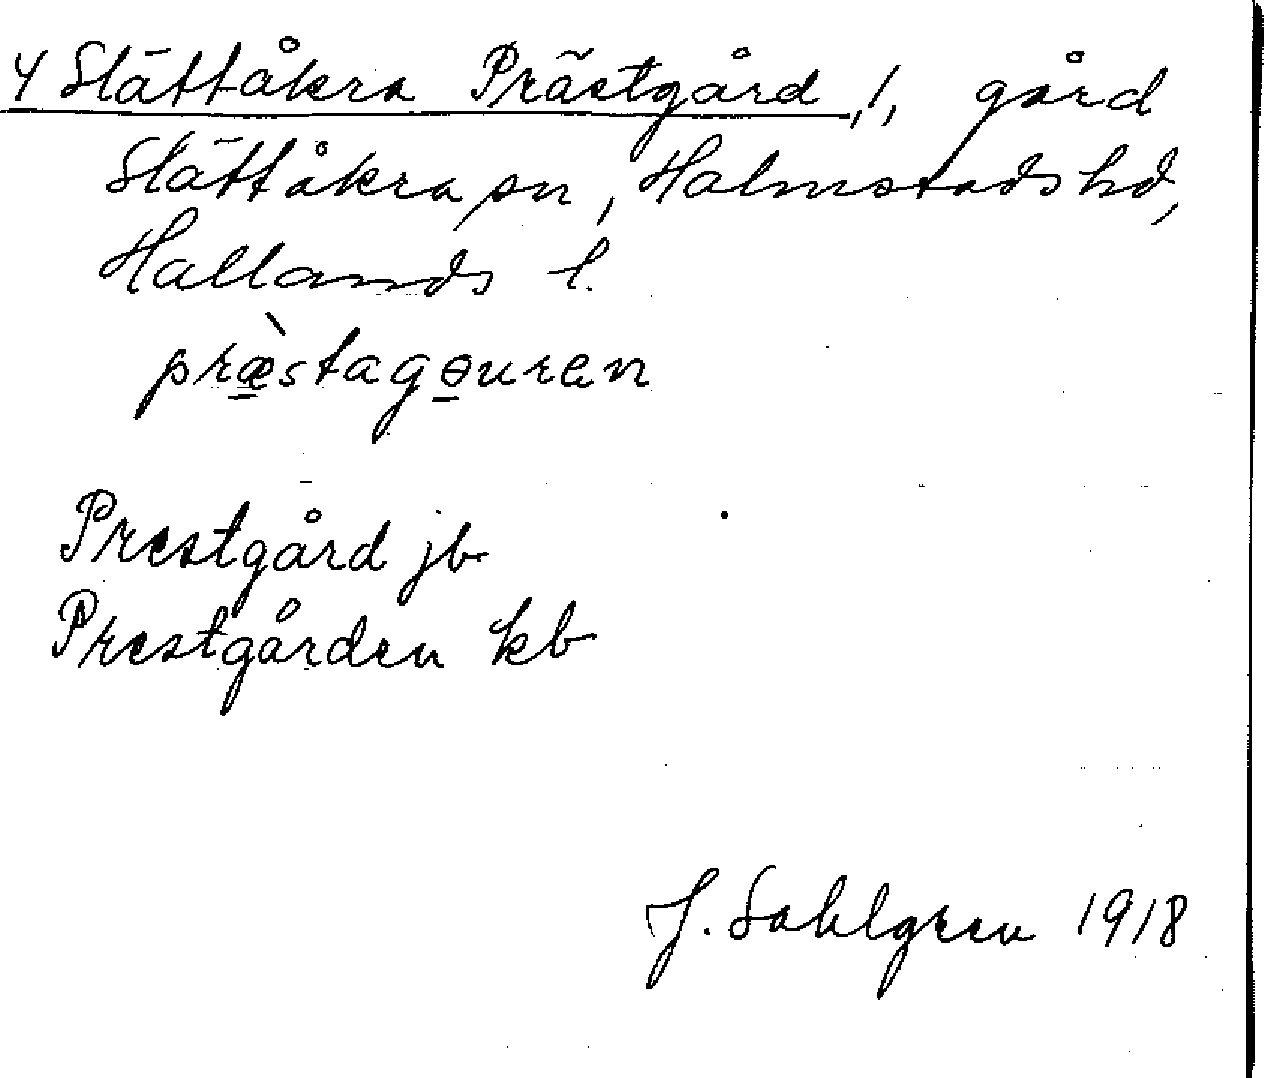 4 Slättåkra Prästgård, 1, gård
Slättåkra sn, Halmstads hd,
Hallands l.
præ̀stagɵuren
Prestgård jb
Prestgården kb
J. Sahlgren 1918